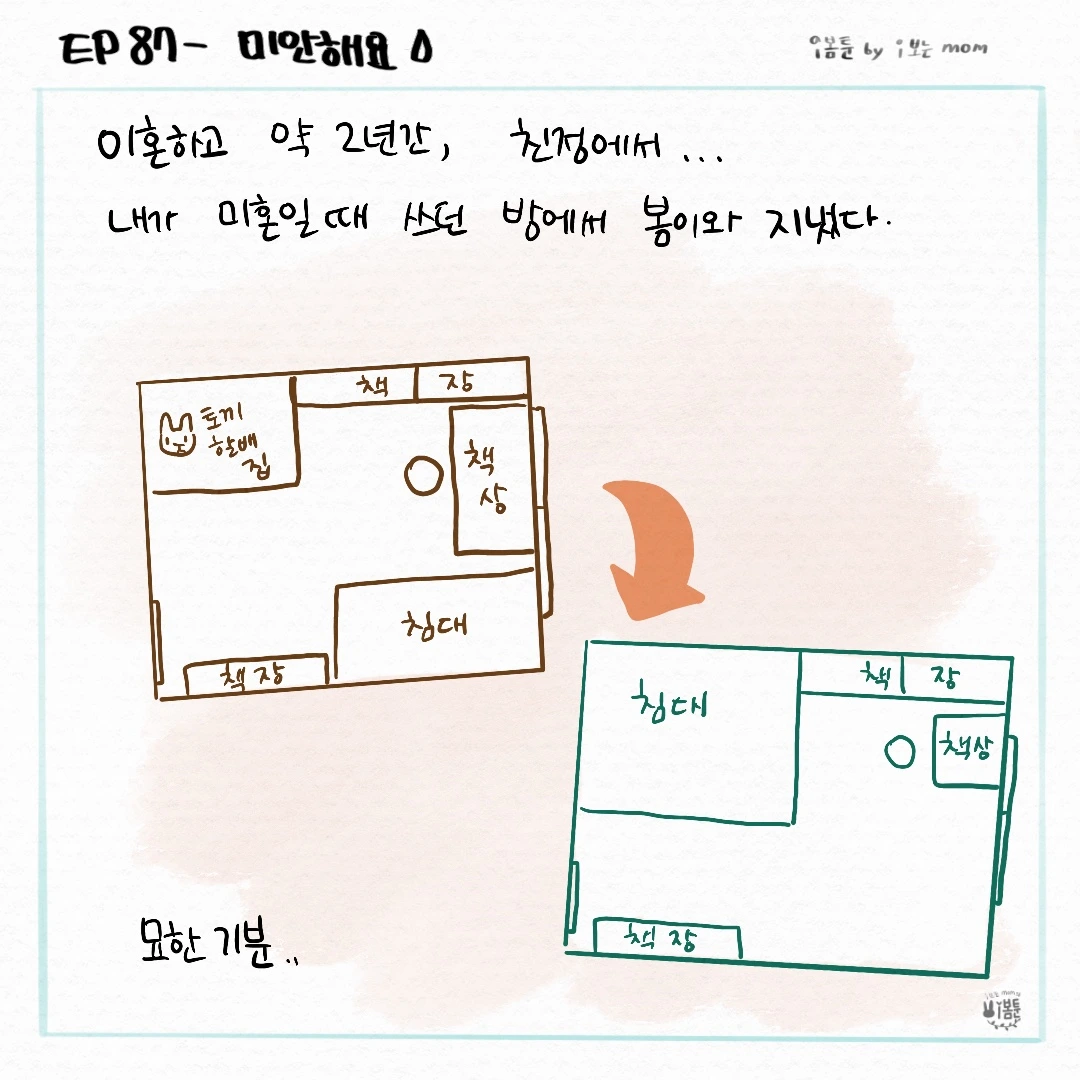 EP 87 - 미안해요
이봄툰 by 이보는 mom
이혼하고 약 2년간, 친정에서...
내가 미혼일 때 쓰던 방에서 봄이와 지냈다.
책장
토끼
할배
집
책
상
침대
책장
침대
책장
책상
책장
묘한 기분..
이봄툰